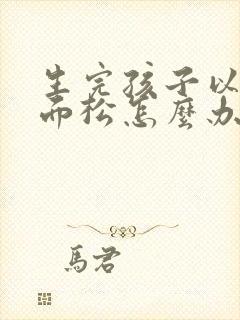 生完孩子以
而松怎麼办
馬君